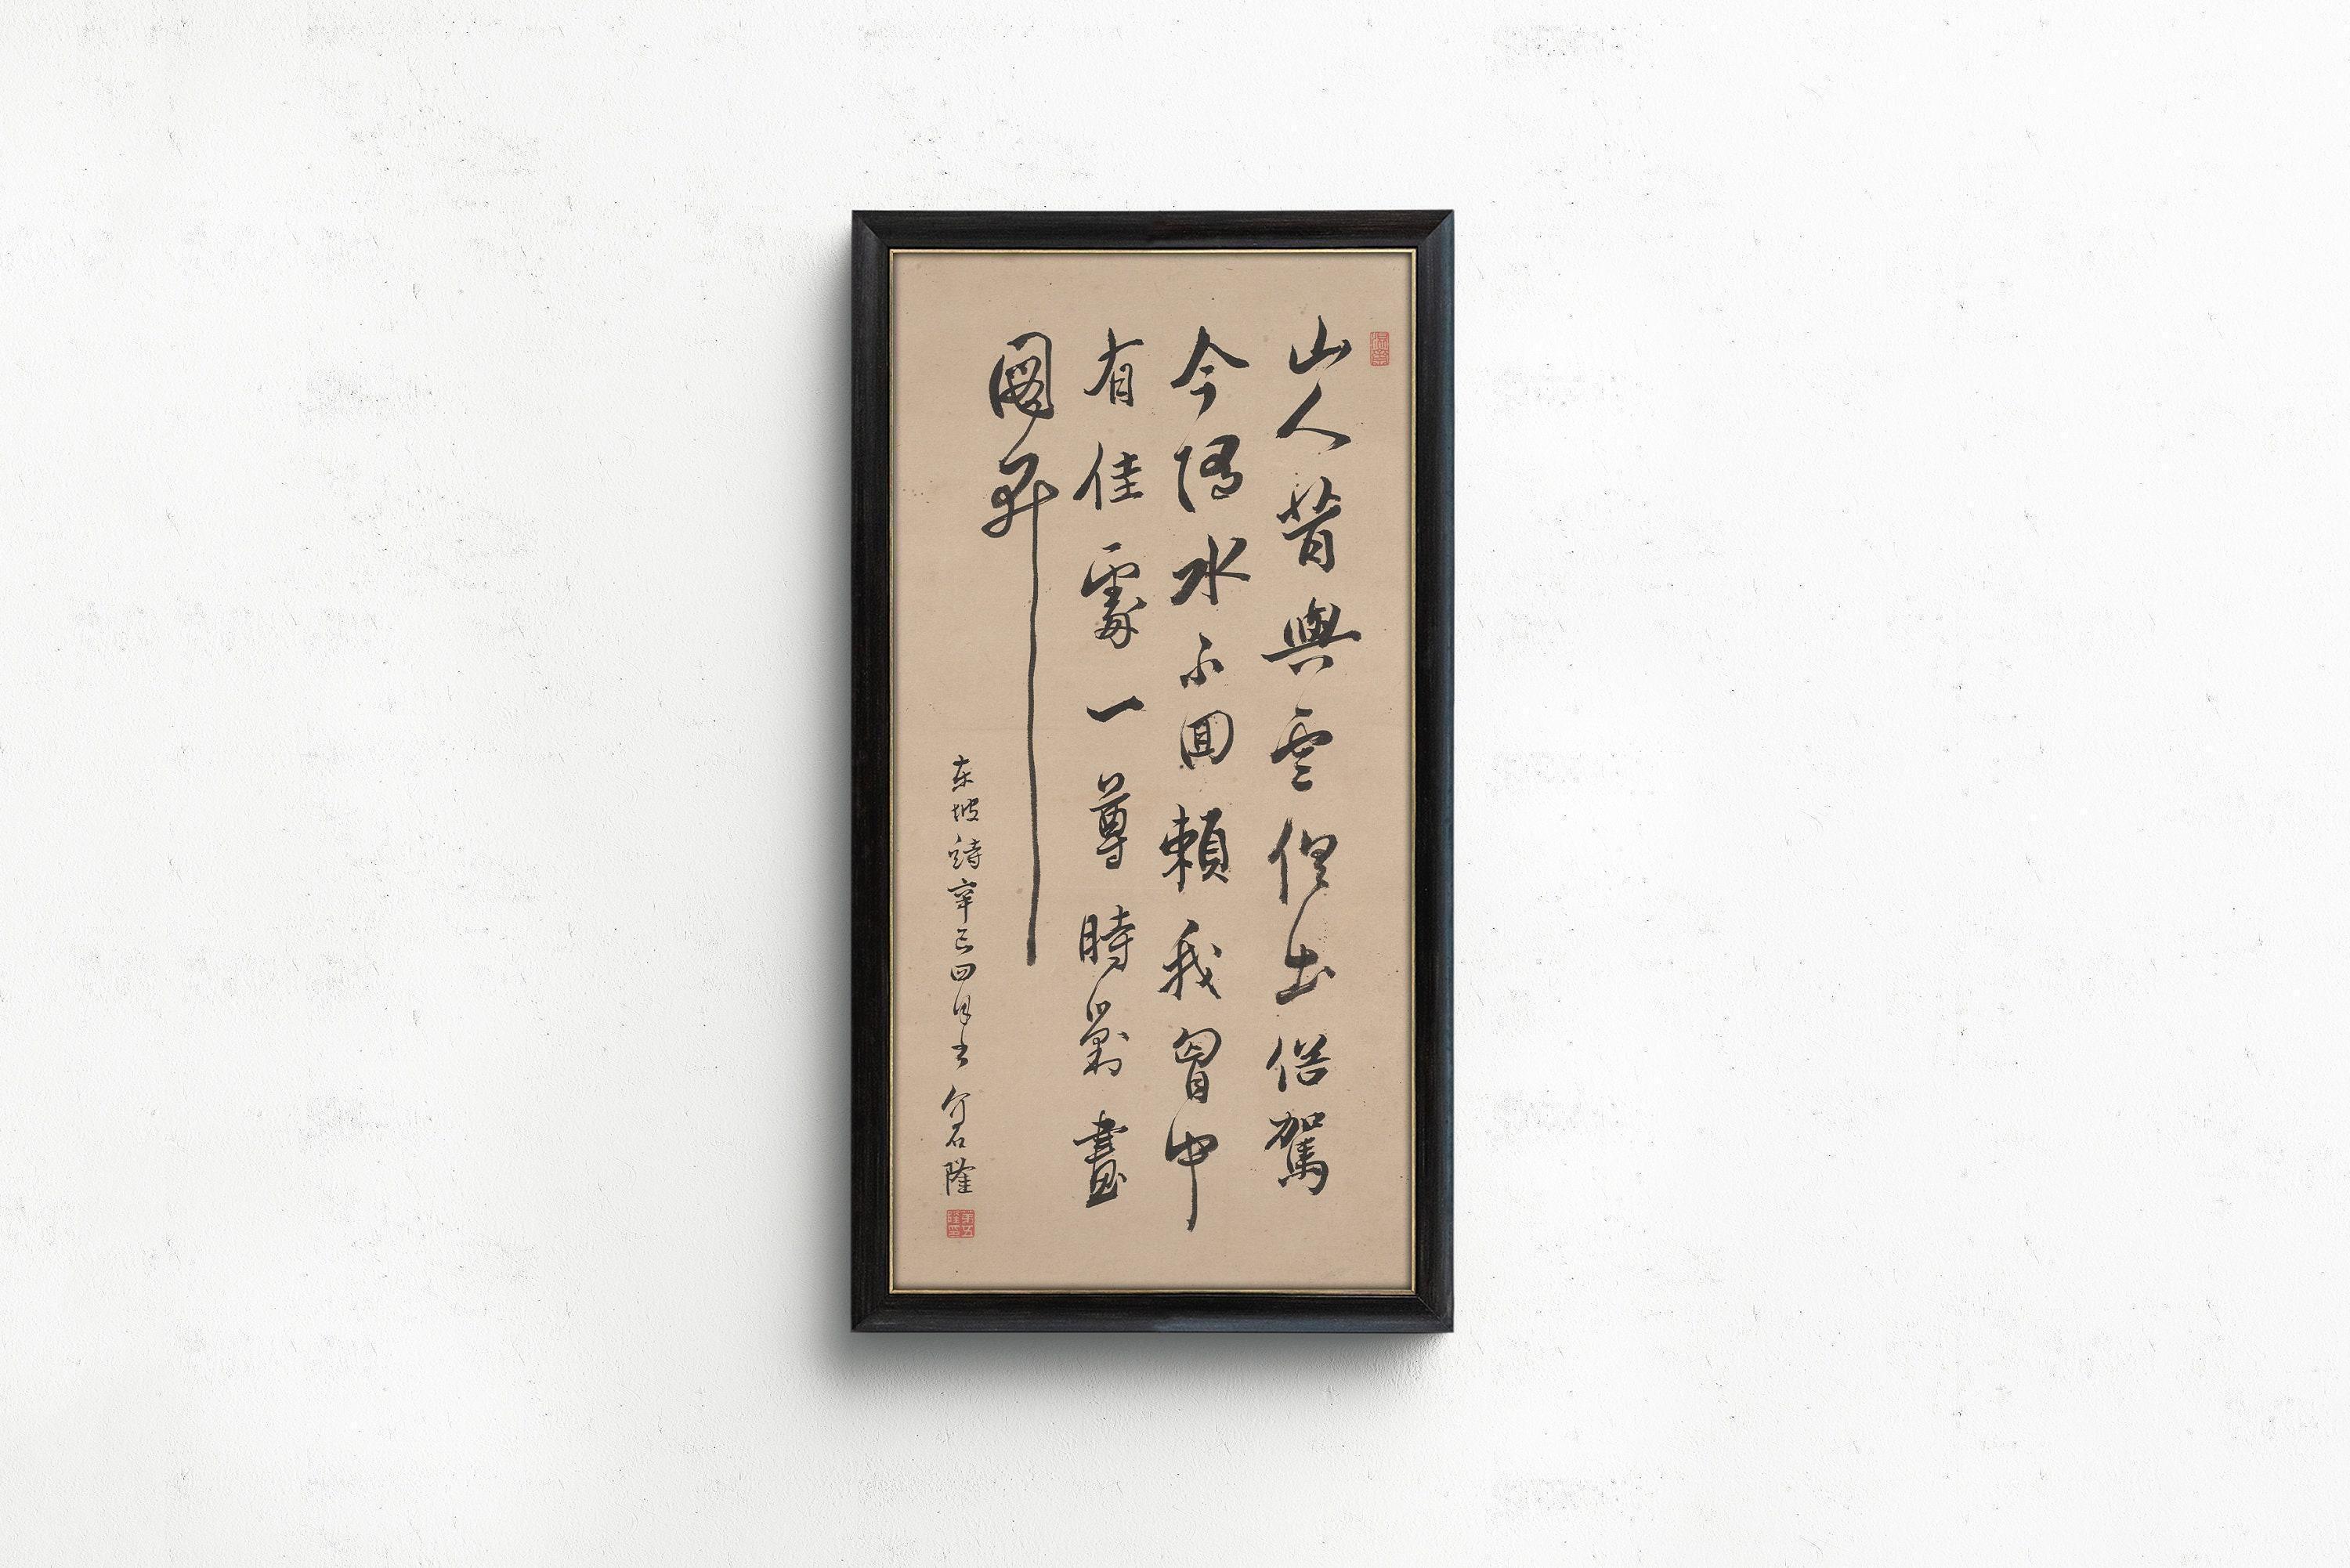 山人昔與雲俱出俗駕
今隨水不回賴我胷中
有佳處一尊時對畫
圖開
东坡詩辛巳四月书 石隆